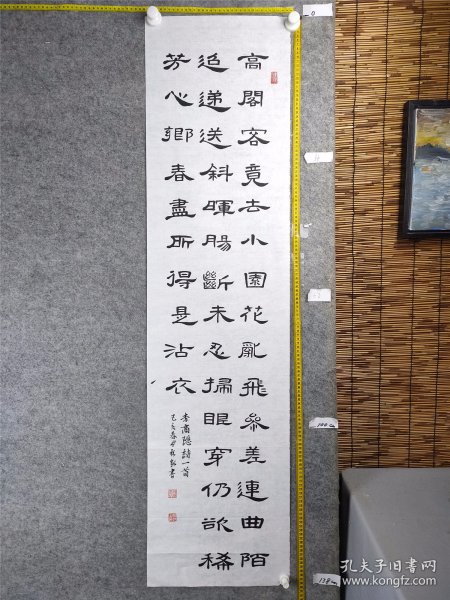 高閣客竟去小園花亂飛參差連曲陌
迢遞送斜暉腸斷未忍掃眼穿仍欲稀
芳心鄉春盡所得是沾衣
李商隱詩一首
己亥春書
0
100cm
138cm
孔夫子旧书网
www.kongfz.com